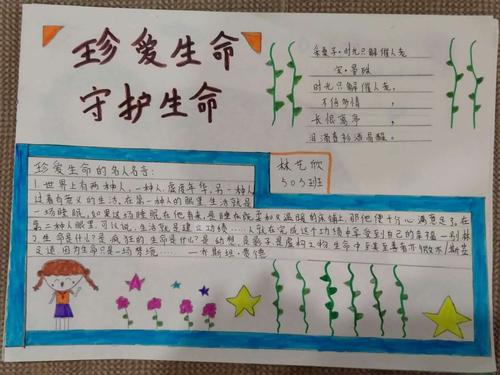 珍爱生命
守护生命
采桑子·时光只解催人老
宋·晏殊
时光只解催人老,
不信多情,
长恨离亭,
泪滴春衫酒易醒。
林艺欣
503班
珍爱生命的名人名言:
1.世界上有两种人,一种人,虚度年华,另一种人
过着有意义的生活,在第一种人的眼里生活就是
一场睡眠,如果这场睡眠在他看来,是睡在既柔和又温暖的床铺上,那他便十分心满意足了,在
第二种人眼里,可以说,生活就是建立功绩……人就在完成这个功绩中享受到自己的幸福一别林
2.生命是什么?是疯狂的生命是什么?是幻想,是影子是虚构之物生命中至善至美者亦微不
足道因为生命只是一场梦境……一卡斯坦·贵德